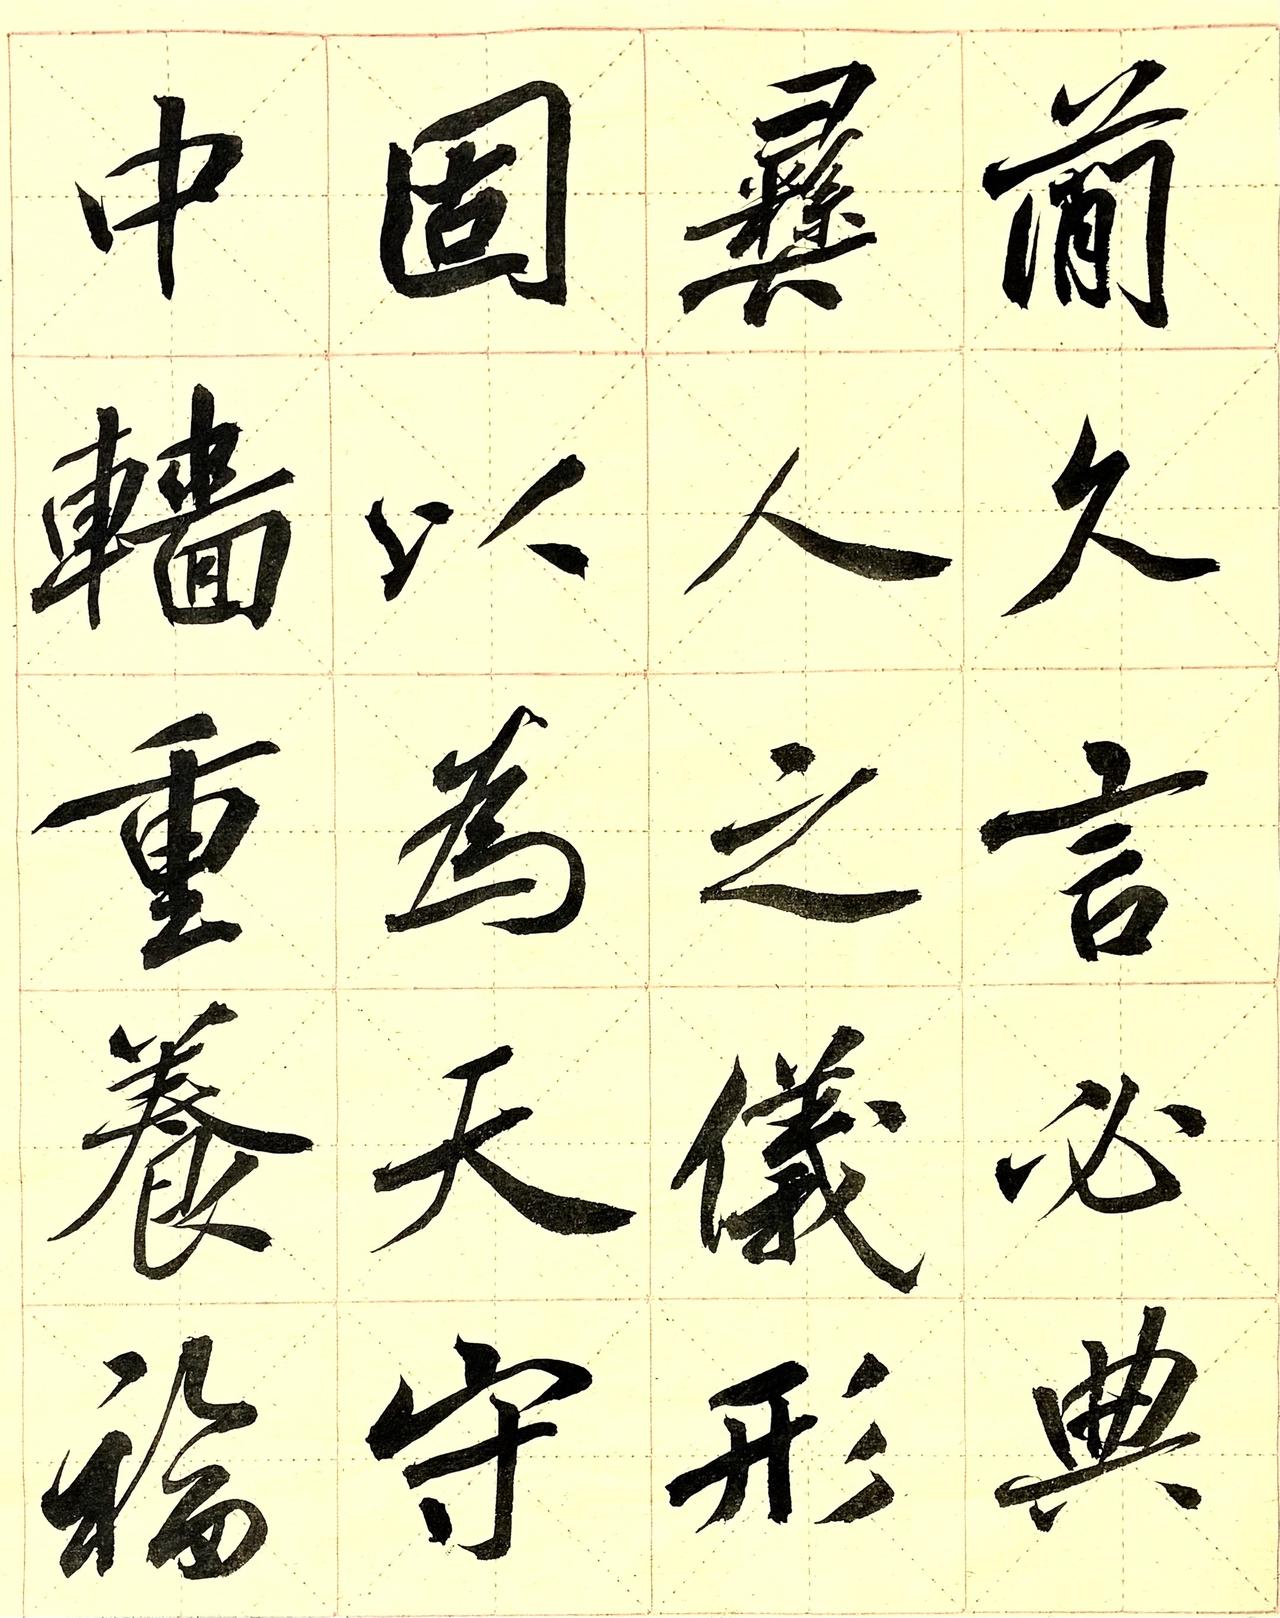 簡久言必典
彝人之儀形
固以為天守
中轖重養福